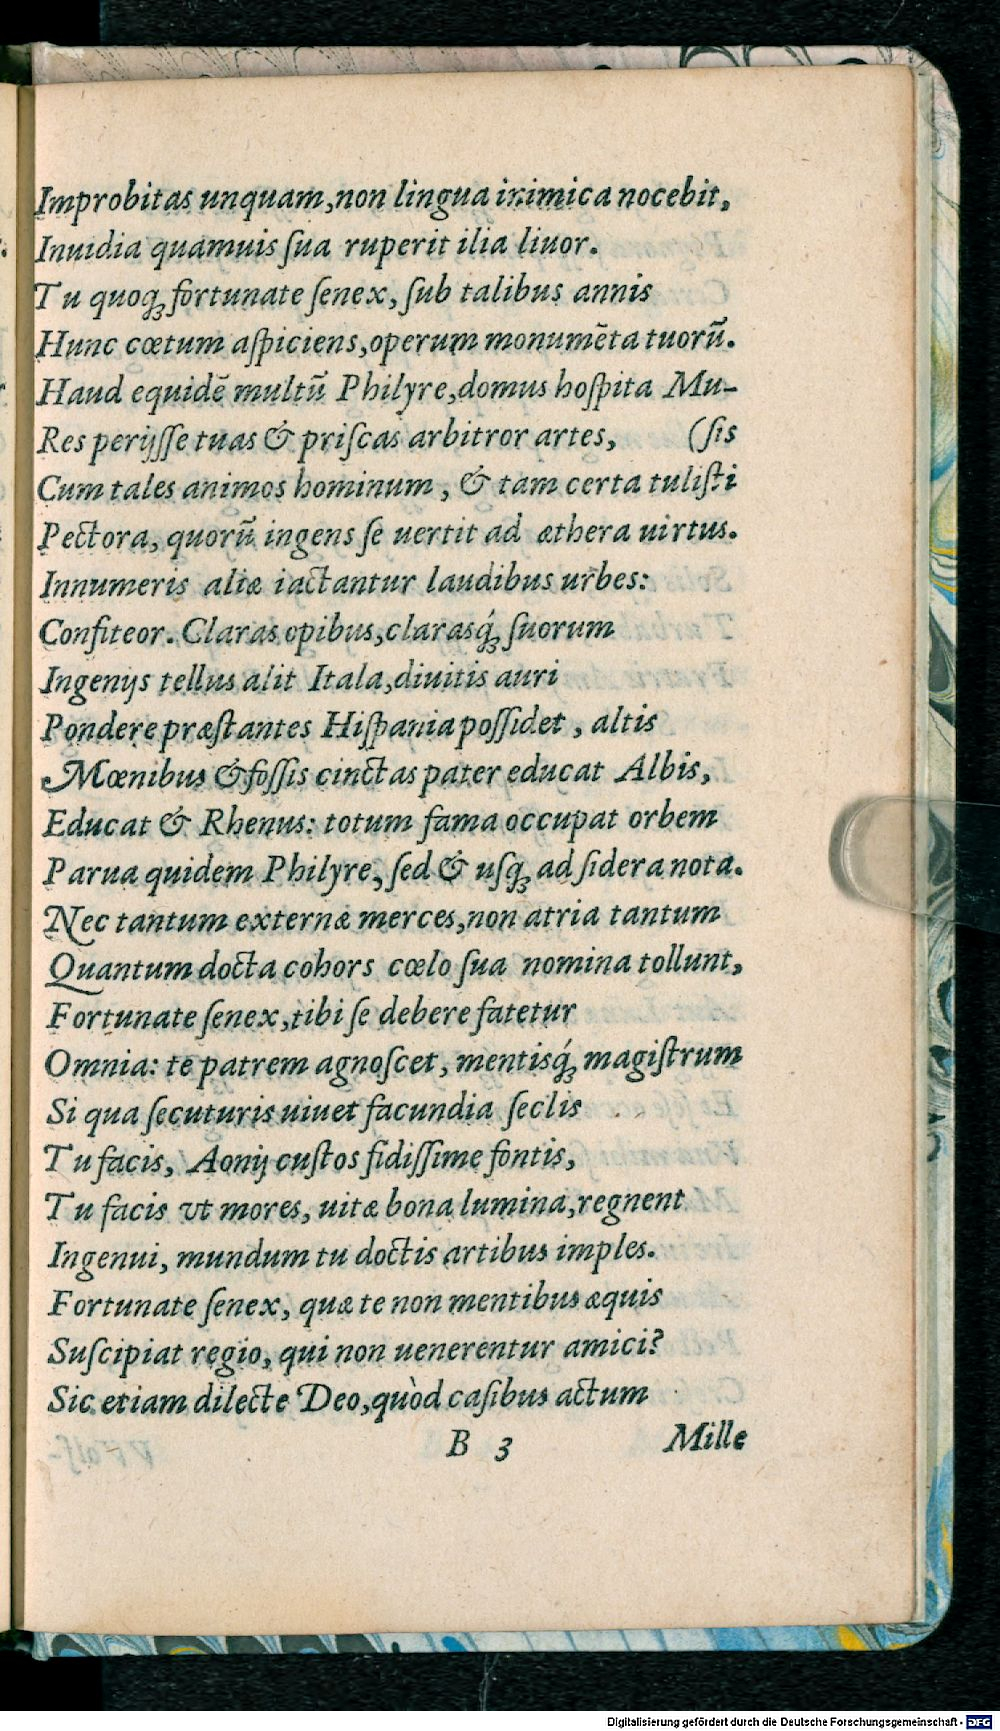 Improbitas unquam, non lingua inimica nocebit,
Inuidia quamuis ſua ruperit ilia liuor.
Tu quoq; fortunate ſenex, ſub talibus annis
Hunc cœtum aſpiciens, operum monumēta tuorū.
Haud equidē multū Philyre, domus hoſpita Mu-
Res perijſſe tuas & priſcas arbitror artes, (ſis
Cum tales animos hominum, & tam certa tuliſti
Pectora, quorū ingens ſe uertit ad æthera uirtus.
Innumeris aliæ iactantur laudibus urbes:
Confiteor. Claras opibus, clarasq́; ſuorum
Ingenijs tellus alit Itala, diuitis auri
Pondere præſtantes Hiſpania poſſidet, altis
Mœnibus & foſſis cinctas pater educat Albis,
Educat & Rhenus: totum fama occupat orbem
Parua quidem Philyre, ſed & uſq; ad ſidera nota.
Nec tantum externæ merces, non atria tantum
Quantum docta cohors cœlo ſua nomina tollunt,
Fortunate ſenex, tibi ſe debere fatetur
Omnia: te patrem agnoſcet, mentisq́; magiſtrum
Si qua ſecuturis uiuet facundia ſeclis
Tu facis, Aonij cuſtos fidiſſime fontis,
Tu facis vt mores, uitæ bona lumina, regnent
Ingenui, mundum tu doctis artibus imples.
Fortunate ſenex, quæ te non mentibus æquis
Suſcipiat regio, qui non uenerentur amici?
Sic etiam dilecte Deo, quòd caſibus actum
B 3 Mille
Digitalisierung gefördert durch die Deutsche Forschungsgemeinschaft - DFG